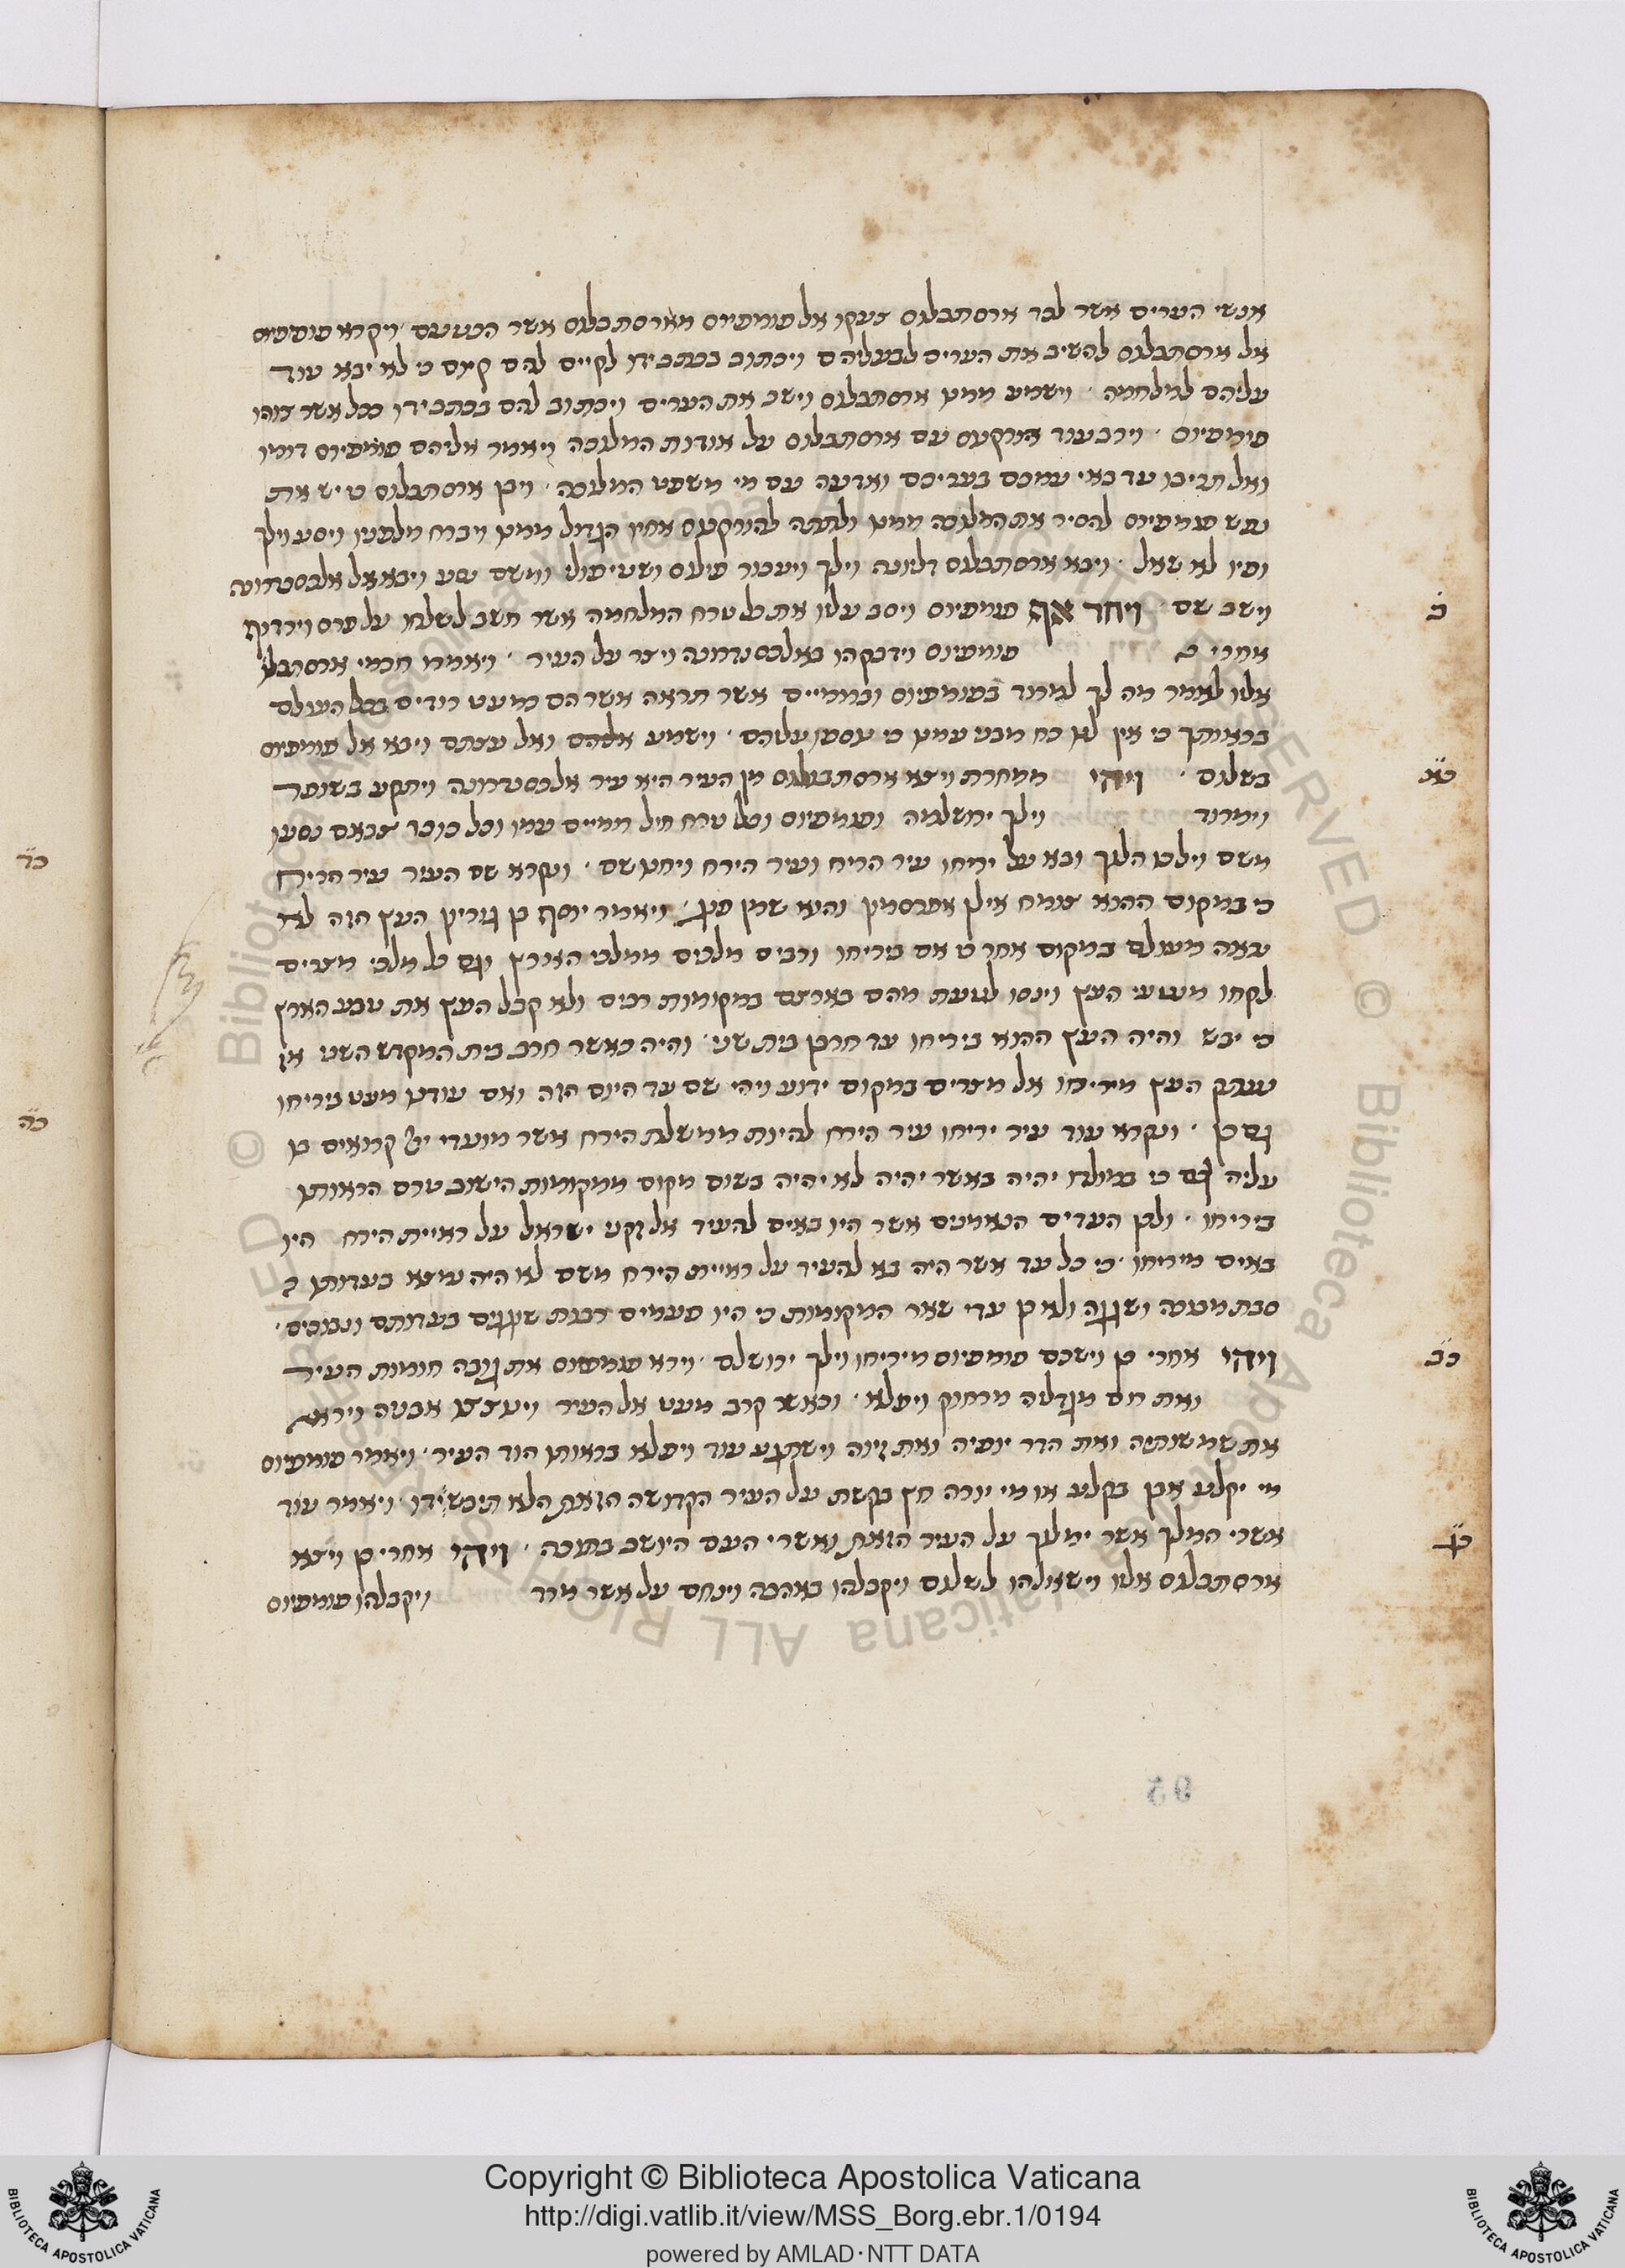 אנשי הערים אשר לכד ארסתבלוס זעקו אל פומפיוס מארסתבלוס אשר הכניעם ויקרא פומפיוס
אל ארסתבלוס להשיב את הערים לבעליהם ויכתוב בכתב ידו לקיים להם קיום כי לא יבא עוד
עליהם למלחמה וישמע ממנו ארסתבלוס וישב את הערים ויכתוב להם בכתב ידו ככל אשר צוהו
פומפיוס וירב עוד הורקנוס עם ארסתבלוס על אודות המלוכה ויאמר אליהם פומפיוס דומו
ואל תריבון עד באי עמכם בעריכם ואדעה עם מי משפט המלוכה ויבן ארסתבלוס כי יש את
נפש פומפיוס להסיר את המלוכה ממנו ולתתה להורקנוס אחיו הגדול ממנו ויברח מלפניו ויסע וילך
ופיו לא שאל ויבא ארסתבלוס וילך ויעבור ומשם נסע ויבא אל אלכסנדרונה
וישב שם ויחר אף פומפיוס ויסב עליו את כל טורח המלחמה אשר חשב לשלוח על פרס וירדוף
אחרי פומפיוס וידביקהו באלכסנדרונה ויצר על העיר ויאמרו חכמי ארסתבלוס
אליו לאמר מה לך למרוד בפומפיוס וברומיים אשר תראה אשר הם כמעט רודים בכל העולם
בראותך כי אין לנו כח מבני עמנו כי עיסקו עליהם וישמע אליהם ואל עצתם ויבא אל פומפיוס
בשלום ויהי ממחרת ויצא ארסתבלוס מן העיר היא עיר אלכסנדרונה ויתקע בשופר
וימרוד וילך ירושלמה ופומפיוס וכל טורח חיל רומיים עמו וכל כובד צבאם נסעו
משם וילכו הלוך ובא על יריחו עיר הריח ועיר הירח ויחנו שם ונקרא שם העיר עיר הריח
כי במקום ההוא צומח אילן אפרסמון והוא שמן ויאמר יוסף בן גוריון העץ הזה לא
נראה מעולם במקום אחר כי אם ביריחו ורבים מלכים ממלכי הארץ וגם כל מלכי מצרים
לקחו מנטעי העץ וינסו לטעת מהם בארצם במקומות רבים ולא קבל העץ את טבע הארץ
כי יבש והיה העץ ההוא ביריחו עד חרבן בית שני והיה כאשר חרב בית המקדש השני אז
נעקב העץ מיריחו אל מצרים במקום ידוע ויהי שם עד היום הזה ואם עודנו מעט ביריחו
גם כן ונקרא עוד עיר יריחו עיר הירח להיות ממשלת הירח אשר מועדי יי קרואים בו
עליה גם כי במולדו יהיה באשר יהיה לא יהיה בשום מקום ממקומות הישוב טרם הראותו
ביריחו ולכן העדים הנאמנים אשר היו באים להעיד אל זקני ישראל על ראיית הירח היו
באים מיריחו כי כל עד אשר היה בא להעיד על ראיית הירח משם לא היה נמצא בעדותו
סבת מבוכה ושגגה ולא כן עדי שאר המקומות כי היו פעמים רבות שוגגים בעדותם ונבוכים
ויהי אחרי כן וישכם פומפיוס מיריחו וילך ירושלם וירא פומפיוס את גובה חומות העיר
ואת רום מגדליה מרחוק ויפלא וכאשר קרב מעט אל העיר אבניה וירא
את שמשותיה ואת הדר יופיה ואת זיוה וישתגע עוד ויפלא בראותו הוד העיר ויאמר פומפיוס
מי יקלע אבן בקלע או מי יורה חץ בקשת על העיר הקדושה הזאת הלא תיבש ידו ויאמר עוד
אשרי המלך אשר ימלוך על העיר הזאת ואשרי העם היושב בתוכה ויהי אחרי כן ויצא
ארסתבלוס אליו וישאילהו לשלום ויקבלהו באהבה וינחם על אשר מרד ויקבלהו פומפיוס
כ
כא
כב
כג
כד
כה
92
Copyright © Biblioteca Apostolica Vaticana
http://digi.vatlib.it/view/MSS_Borg.ebr.1/0194
powered by AMLAD·NTT DATA
BIBLIOTECA APOSTOLICA VATICANA
BIBLIOTECA APOSTOLICA VATICANA